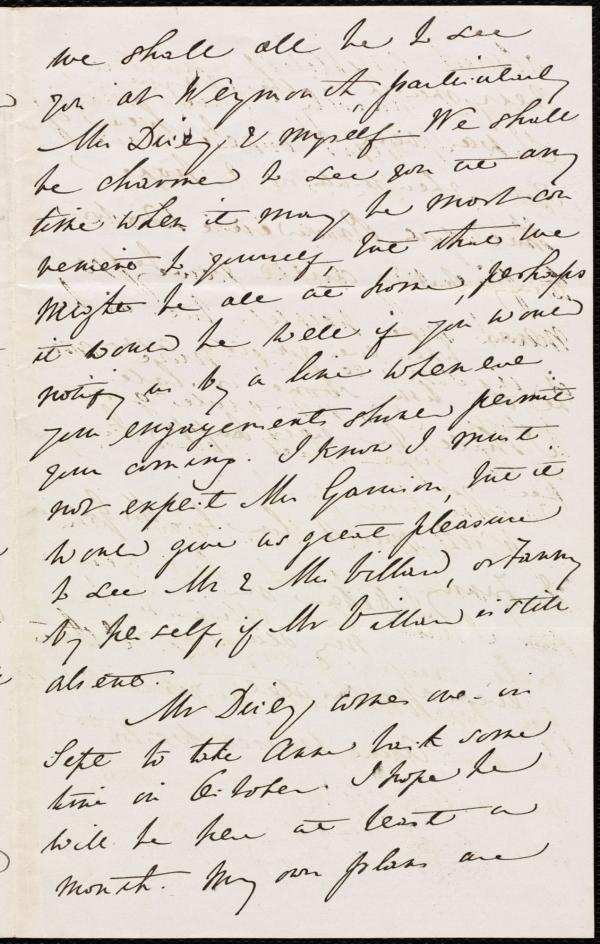 we shall all be to see
you at Weymouth, particularly
Mrs Dicey & myself. We shall
be charmed to see you at any
time when it may be most con
venient to yourself, but that we
might be all at home, perhaps
it would be well if you would
notify us by a line whenever
your engagements should permit
your coming. I know I must
not expect Mrs Garrison, but it
would give us great pleasure
to see Mr & Mrs Villard, or Fanny
by herself, if Mr Villard is still
absent.
Mr Dicey comes over in
Sept to take Anne back some
time in October. I hope he
will be here at least a
month. My own plans are